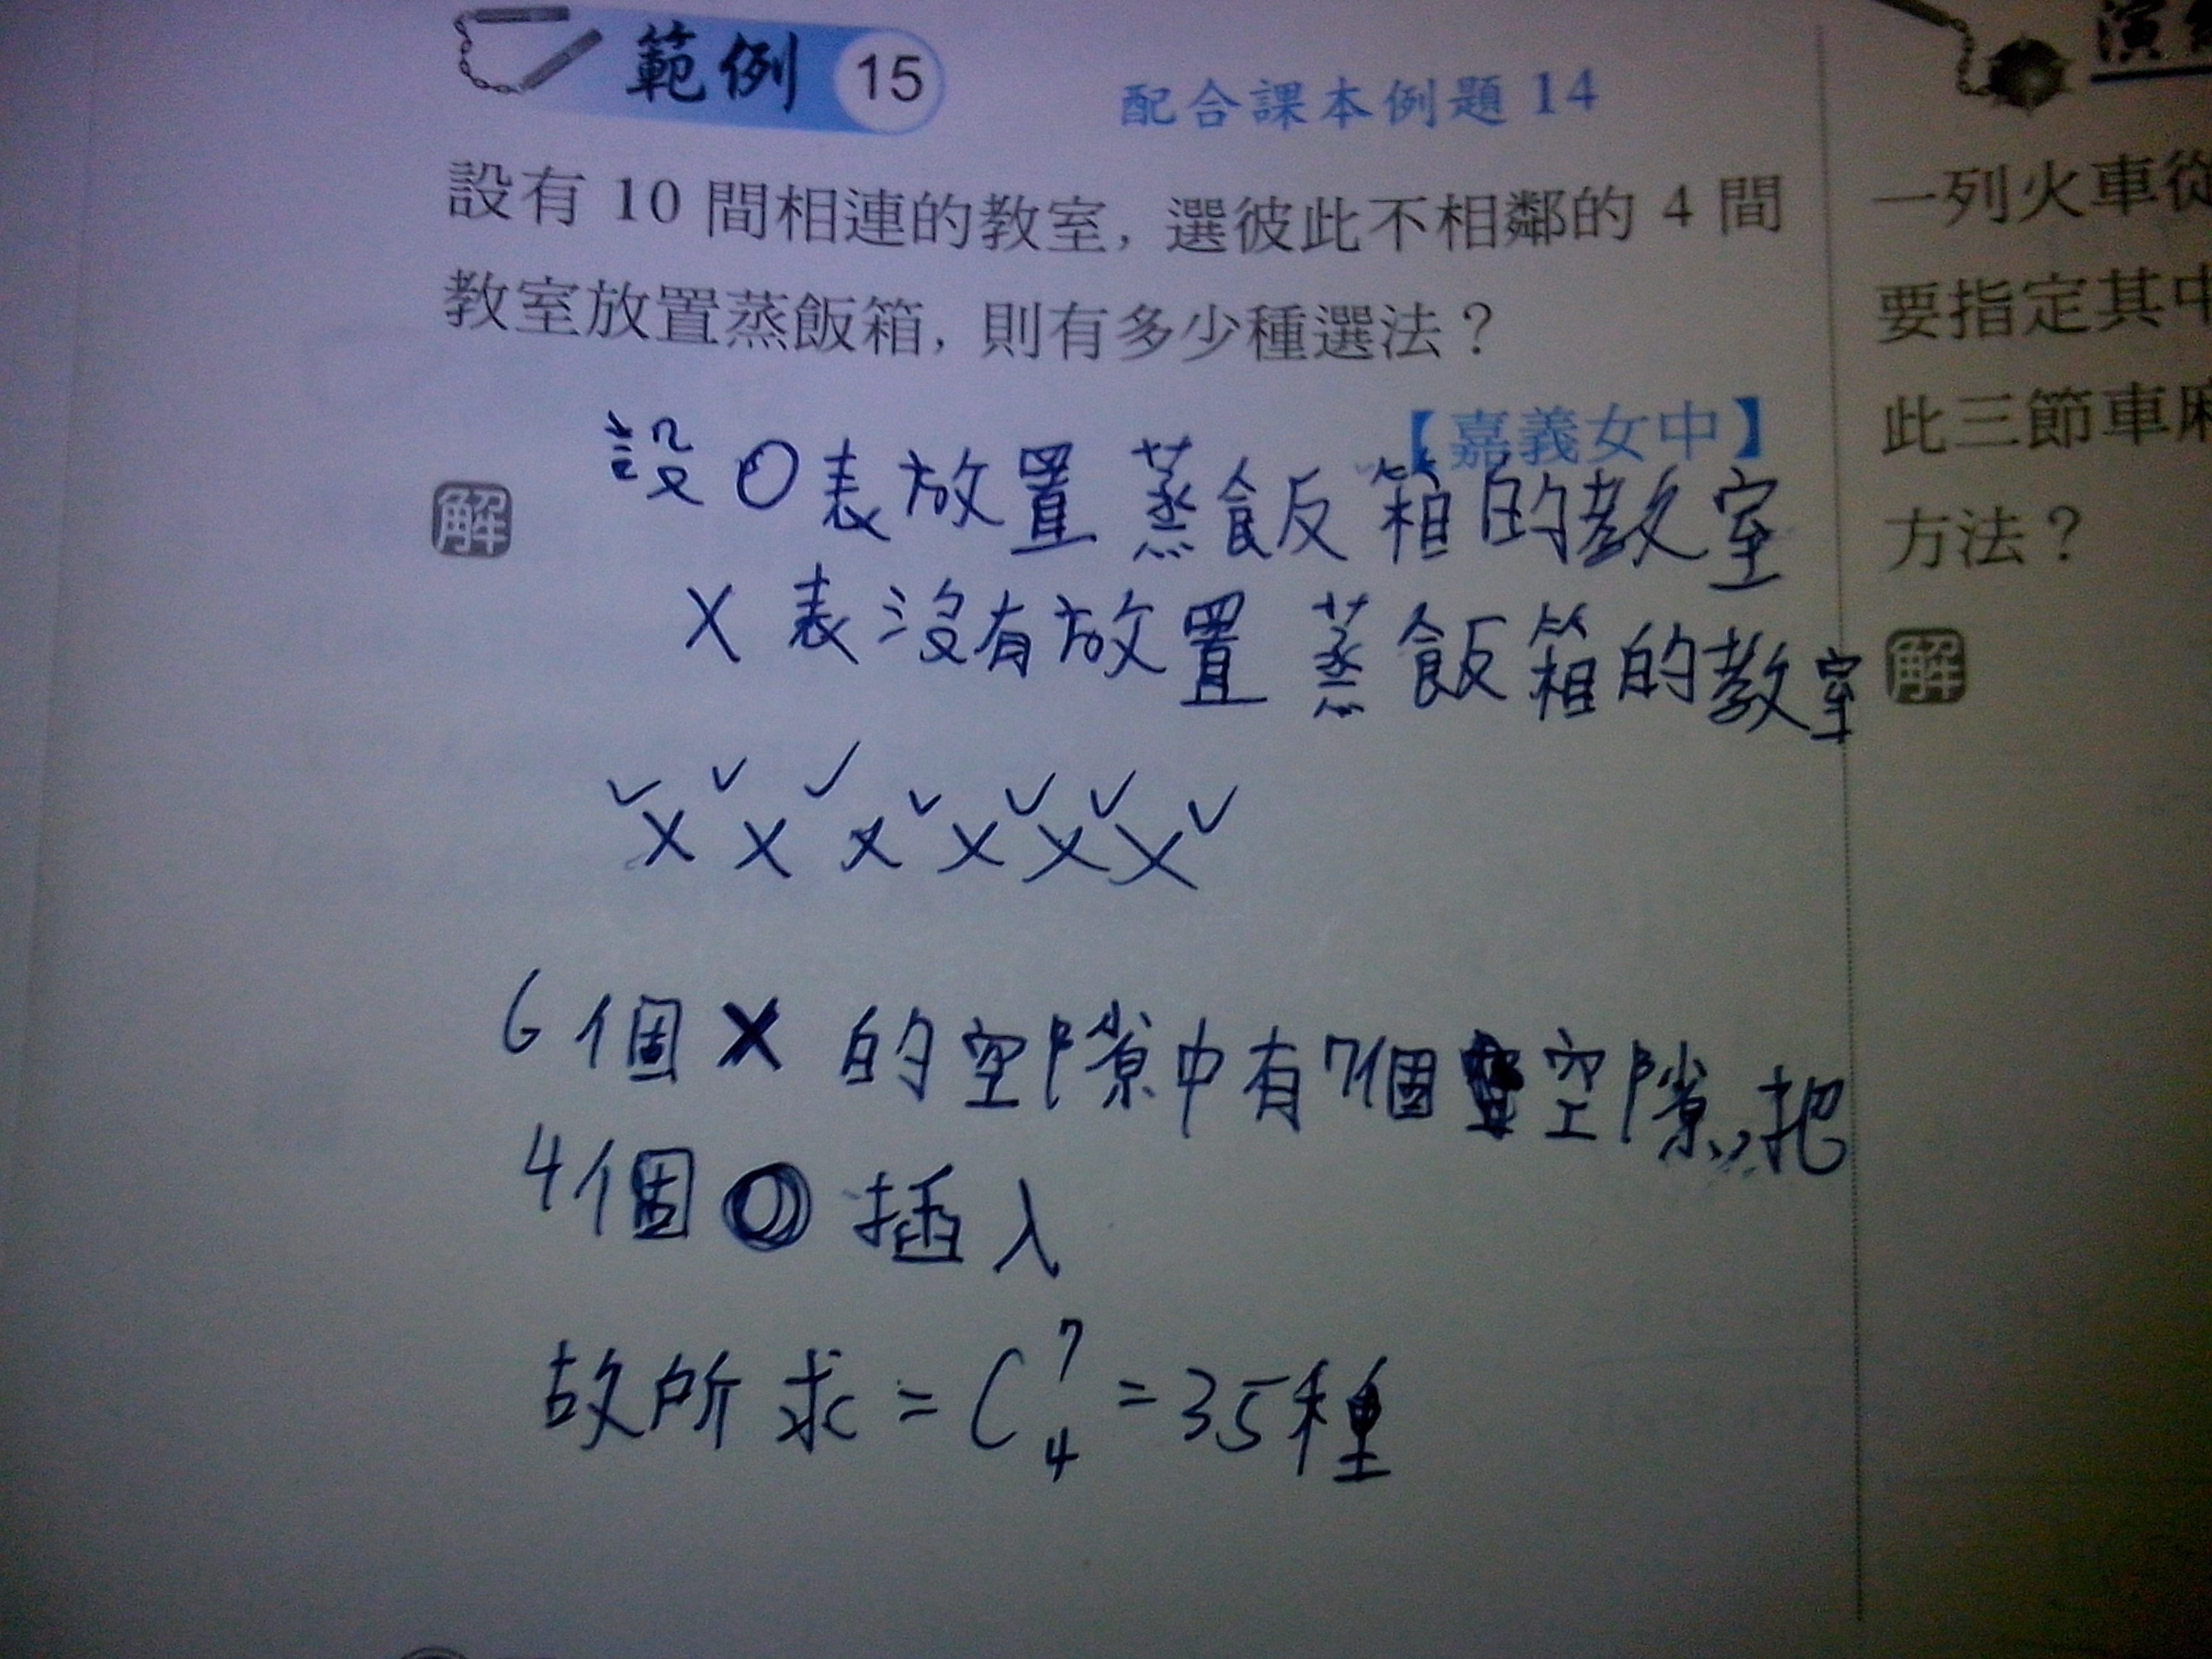 範例 15 配合課本例題 14
設有 10 間相連的教室, 選彼此不相鄰的 4 間
教室放置蒸飯箱, 則有多少種選法?
【嘉義女中】
解
設O表放置蒸飯箱的教室
X表沒有放置蒸飯箱的教室
✓X✓X✓X✓X✓X✓X✓
6個X的空隙中有7個空隙,把
4個O插入
故所求=C⁷₄=35種
演
一列火車從
要指定其中
此三節車廂
方法?
解